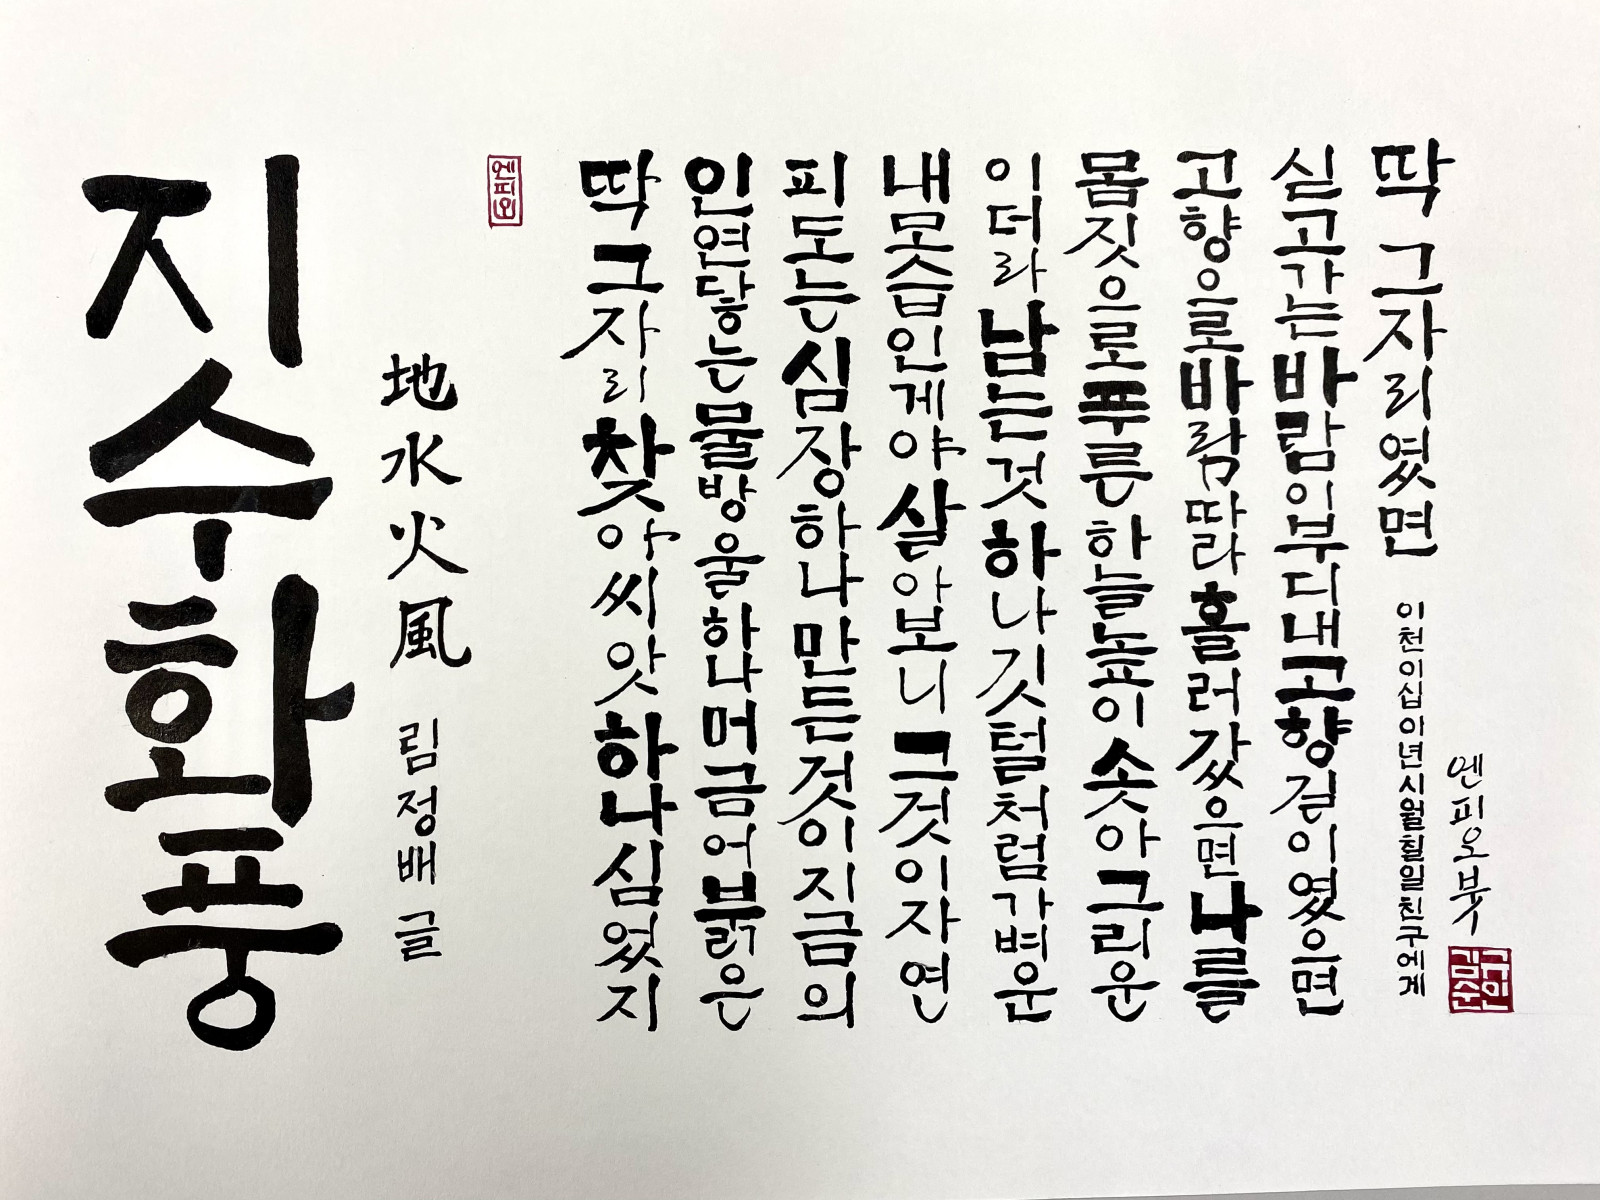 지수화풍
地水火風 림정배 글
엔피오
딱 그자리 찾아 씨앗 하나 심었지
인연닿는 물방울 하나 머금어 붉은
피도는 심장 하나 만든것이 지금의
내모습인게야 살아보니 그것이 자연
이더라 남는것 하나 깃털처럼 가벼운
몸짓으로 푸른하늘 높이 솟아 그리운
고향으로 바람따라 흘러갔으면 나를
싣고가는 바람이 부디 내고향 길이였으면
딱 그자리였면
이천이십이년시월칠일친구에게
엔피오붓